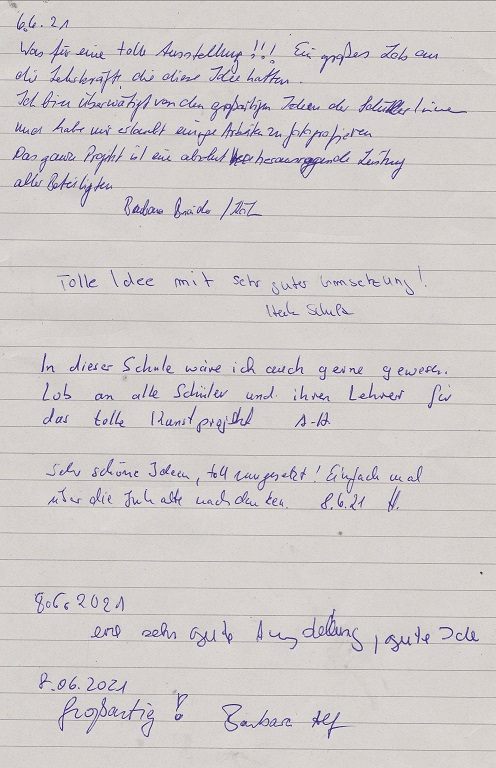 6.6.21
Was für eine tolle Ausstellung!!! Ein großes Lob an
die Lehrkräfte, die diese Idee hatten.
Ich bin überwältigt von den großartigen Ideen der Schüler/innen
und habe mir erlaubt einige Arbeiten zu fotografieren
Das ganze Projekt ist eine absolut herausragende Leistung
aller Beteiligten
Barbara
Tolle Idee mit sehr guter Umsetzung!
In dieser Schule wäre ich auch gerne gewesen.
Lob an alle Schüler und ihren Lehrer für
das tolle Kunstprojekt A-H
Sehr schöne Ideen, toll umgesetzt! Einfach mal
über die Inhalte nachdenken. 8.6.21 H.
8.6.2021
eine sehr gute Ausstellung, gute Idee
8.06.2021
Großartig! Barbara